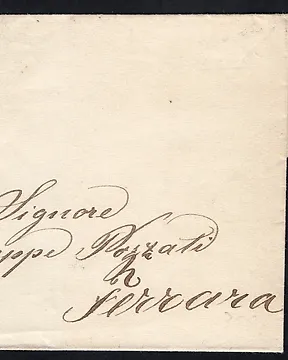 Signore
ppe Pozzati
Ferrara